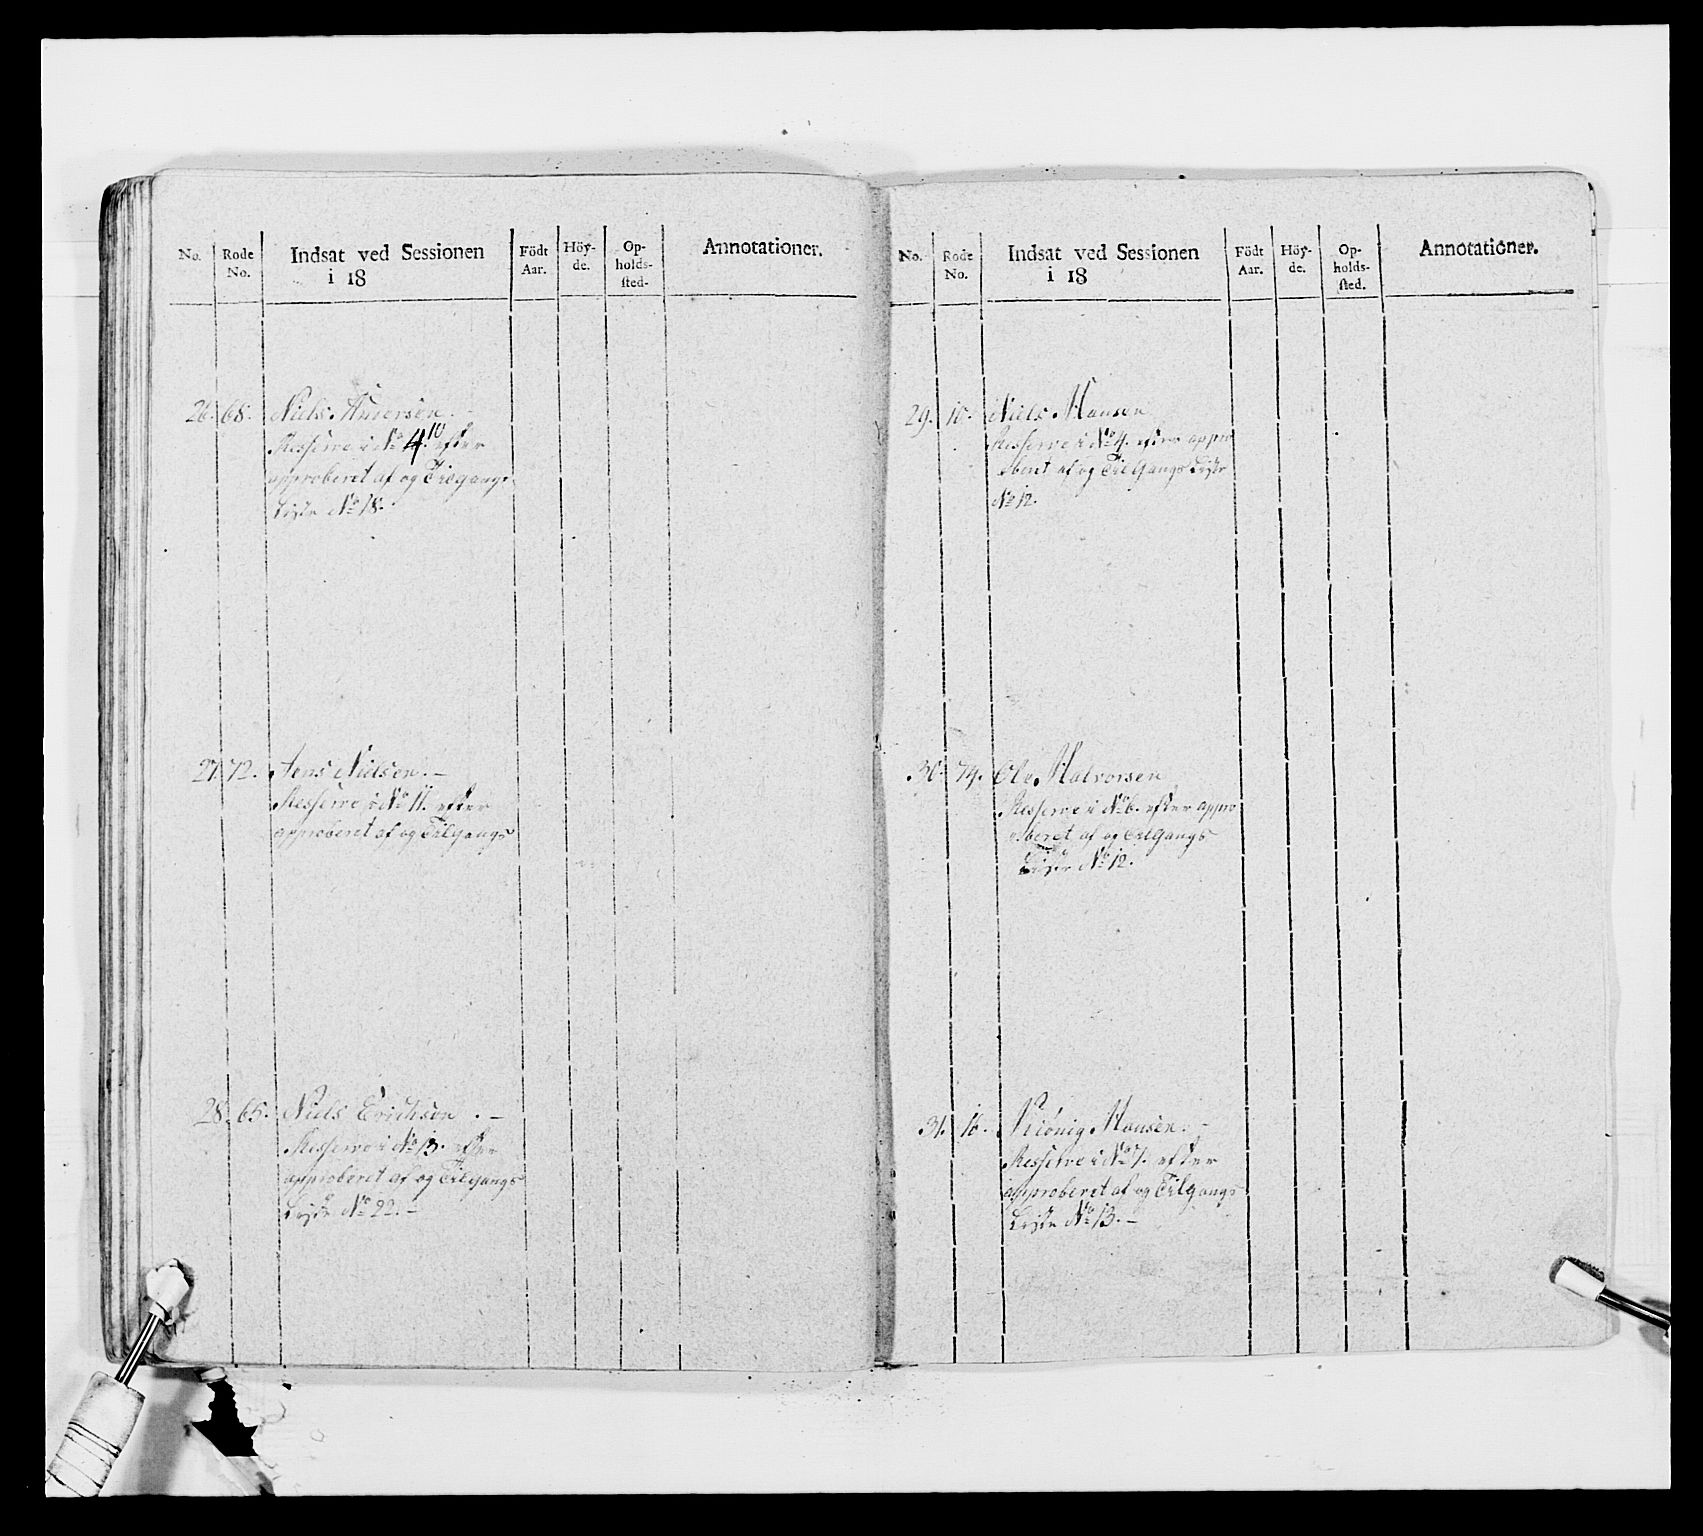 No. Rode No. Indsat ved Sessionen i 18 Födt Aar. Höy-de. Op-holds-sted. Annotationer.
26. 68. Niels Andersen. -
Reserve i No 4. 10 efter
approberet af og Tilgangs
Liste No 18.
27. 72. Jens Nielsen. -
Reserve i No 11. efter
approberet af og Tilgangs
28. 65. Niels Erichsen. -
Reserve i No 13. efter
approberet af og Tilgangs
Liste No 22. -
No. Rode No. Indsat ved Sessionen i 18 Födt Aar. Höy-de. Op-holds-sted. Annotationer.
29. 10. Niels Hansen
Reserve i No 4. efter appro
beret af og Tilgangs Liste
No 12.
30. 74. Ole Halvorsen
Reserve i No 6. efter appro
beret af og Tilgangs
Liste No 12.
31. 16. Hansen. -
Reserve i No 7. efter
approberet af og Tilgangs
Liste No 13. -